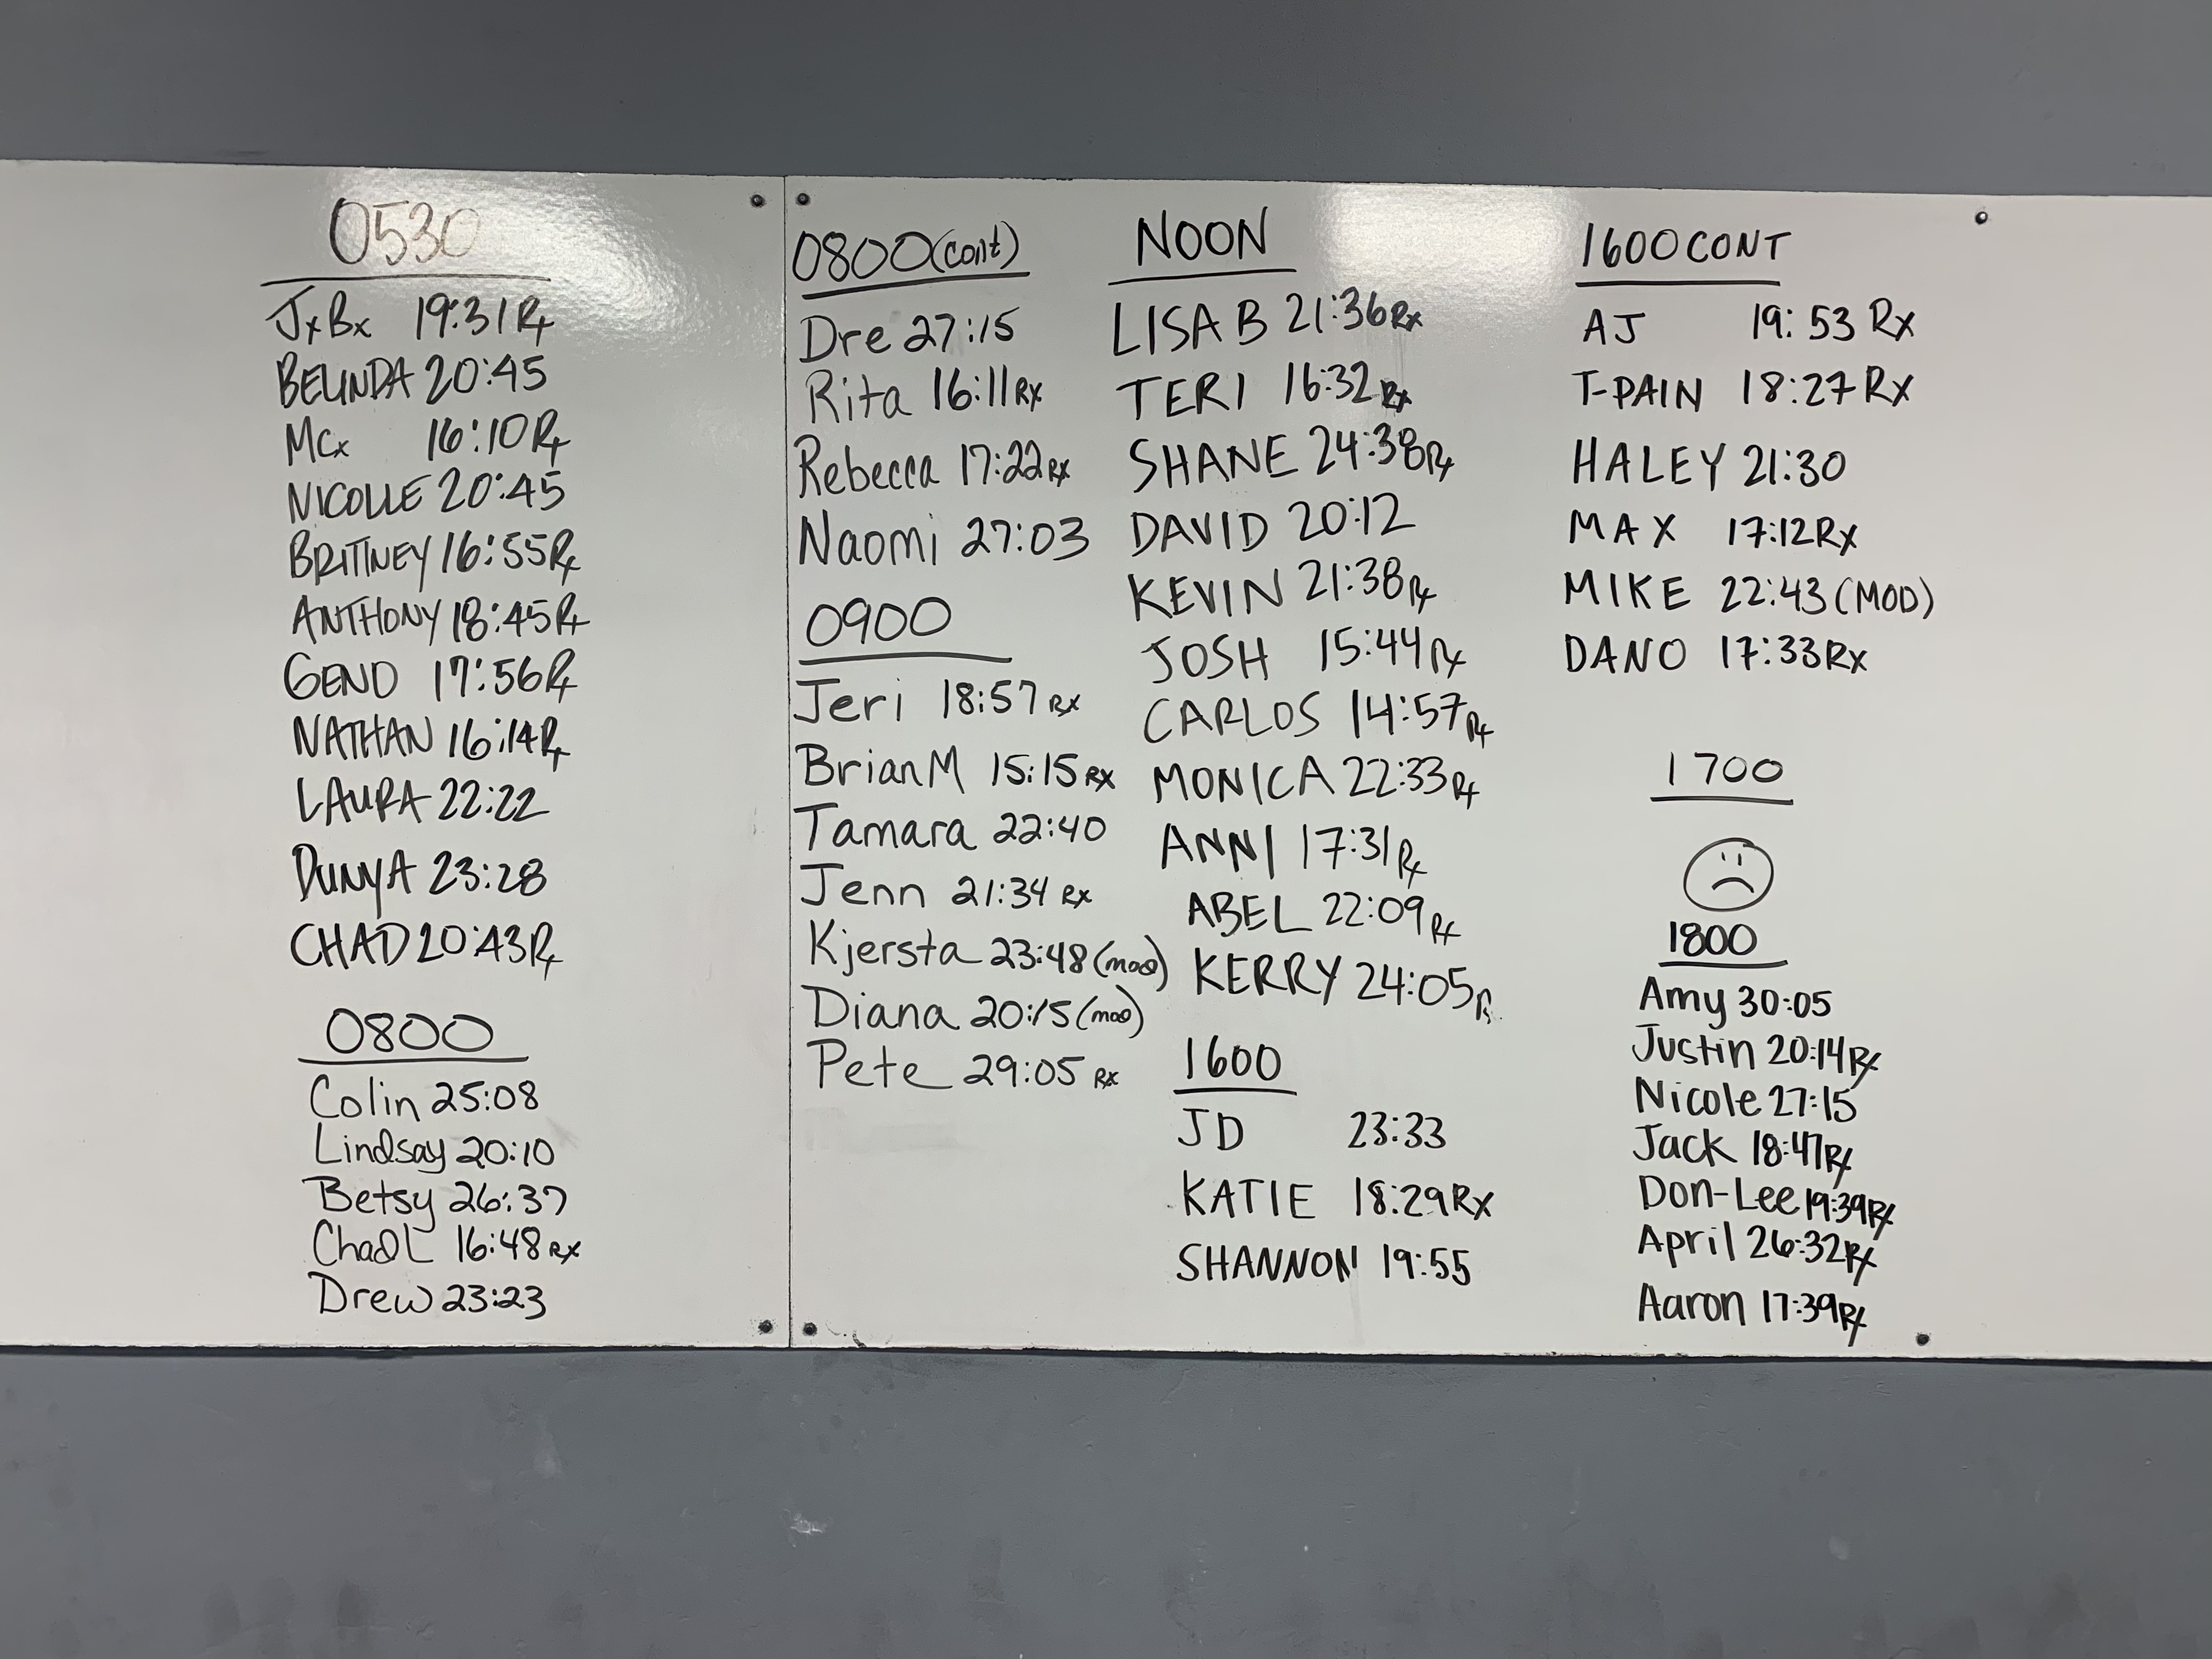 0530
JxBx 19:31 Rx
BELINDA 20:45
MCx 16:10 Rx
NICOLLE 20:45
BRITTNEY 16:55 Rx
ANTHONY 18:45 Rx
GENO 17:56 Rx
NATHAN 16:14 Rx
LAURA 22:22
DUNYA 23:28
CHAD 20:43 Rx
0800
Colin 25:08
Lindsay 20:10
Betsy 26:37
Chad L 16:48 RX
Drew 23:23
0800 (cont)
Dre 27:15
Rita 16:11 RX
Rebecca 17:22 RX
Naomi 27:03
0900
Jeri 18:57 RX
Brian M 15:15 RX
Tamara 22:40
Jenn 21:34 RX
Kjersta 23:48 (mod)
Diana 20:15 (mod)
Pete 29:05 RX
NOON
LISA B 21:36 Rx
TERI 16:32 Rx
SHANE 24:38 Rx
DAVID 20:12
KEVIN 21:38 Rx
JOSH 15:44 Rx
CARLOS 14:57 Rx
MONICA 22:33 Rx
ANNI 17:31 Rx
ABEL 22:09 Rx
KERRY 24:05 Rx
1600
JD 23:33
KATIE 18:29 Rx
SHANNON 19:55
1600 CONT
AJ 19:53 Rx
T-PAIN 18:27 Rx
HALEY 21:30
MAX 17:12 Rx
MIKE 22:43 (MOD)
DANO 17:33 Rx
1700
1800
Amy 30:05
Justin 20:14 Rx
Nicole 27:15
Jack 18:47 Rx
Don-Lee 19:39 Rx
April 26:32 Rx
Aaron 17:39 Rx